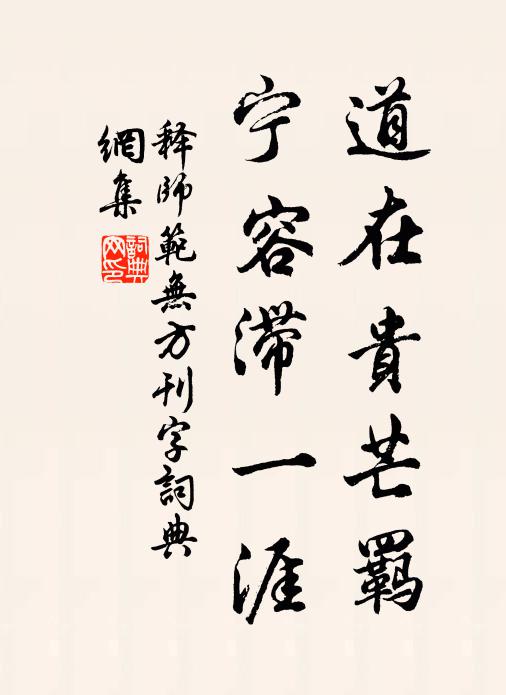 道在貴芒羁
宁容滞一涯
释師範無方刊字詞典
網集
詞典
网印